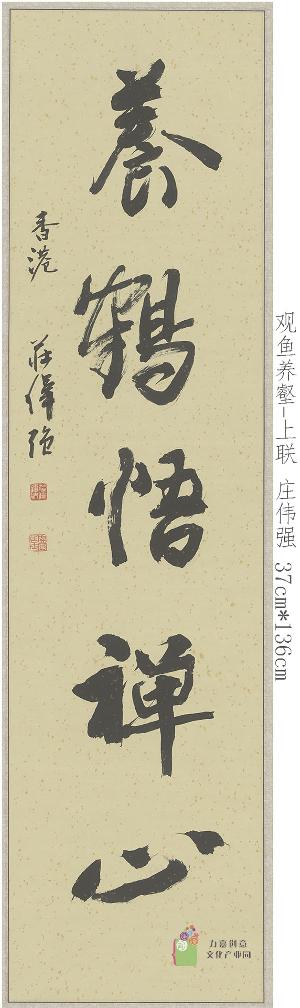 養鶴悟禅心
香港 莊偉强
观鱼养壑-上联 庄伟强 37cm*136cm
力嘉创意
文化产业园